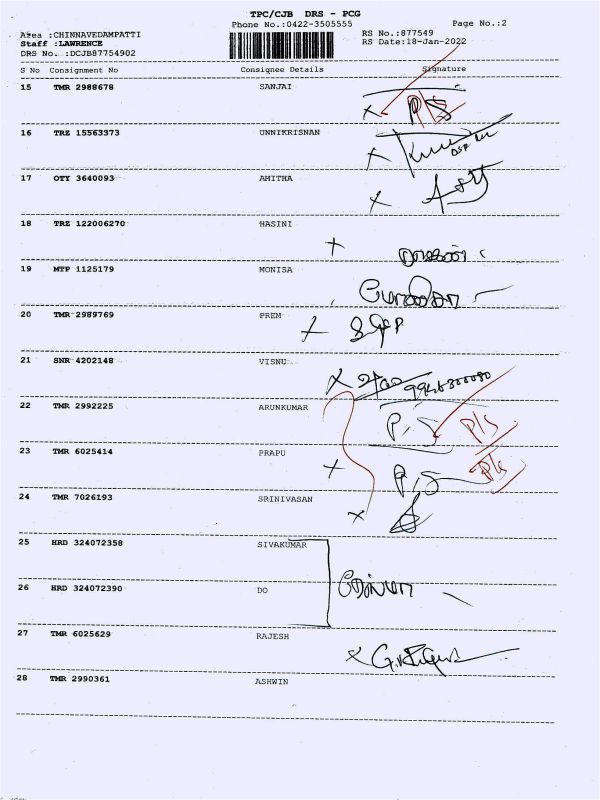 TPC/CJB DRS - PCG
Phone No.:0422-3505555 Page No.:2
Area :CHINNAVEDAMPATTI RS No.:877549
Staff :LAWRENCE RS Date:18-Jan-2022
DRS No. :DCJB87754902
S No Consignment No Consignee Details Signature
15 TMR 2988678 SANJAI
P/S
16 TRZ 15563373 UNNIKRISNAN
17 OTY 3640093 AMITHA
18 TRZ 122006270 HASINI
19 MTP 1125179 MONISA
20 TMR 2989769 PREM
21 SNR 4202148 VISNU
22 TMR 2992225 ARUNKUMAR
P,S P/S
23 TMR 6025414 PRAPU
P,S P/S
24 TMR 7026193 SRINIVASAN
25 HRD 324072358 SIVAKUMAR
26 HRD 324072390 DO
27 TMR 6025629 RAJESH
28 TMR 2990361 ASHWIN